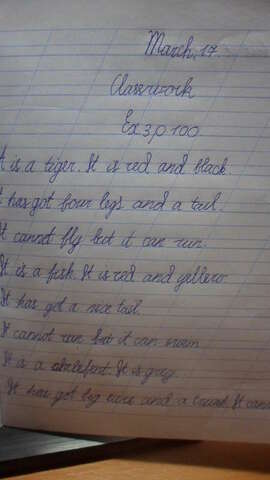 March, 17
Classwork
Ex 3, p 100
It is a tiger. It is red and black.
It has got four legs and a tail.
It cannot fly but it can run.
It is a fish. It is red and yellow.
It has got a nice tail.
It cannot run but it can swim.
It is a It is grey.
It has got big ears and a It cann